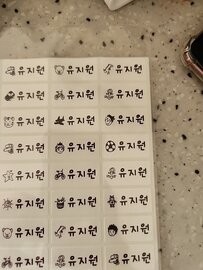 유지원 유지원 유지원
유지원 유지원 유지원
유지원 유지원 유지원
유지원 유지원 유지원
유지원 유지원 유지원
유지원 유지원 유지원
유지원 유지원 유지원
유지원 유지원 유지원